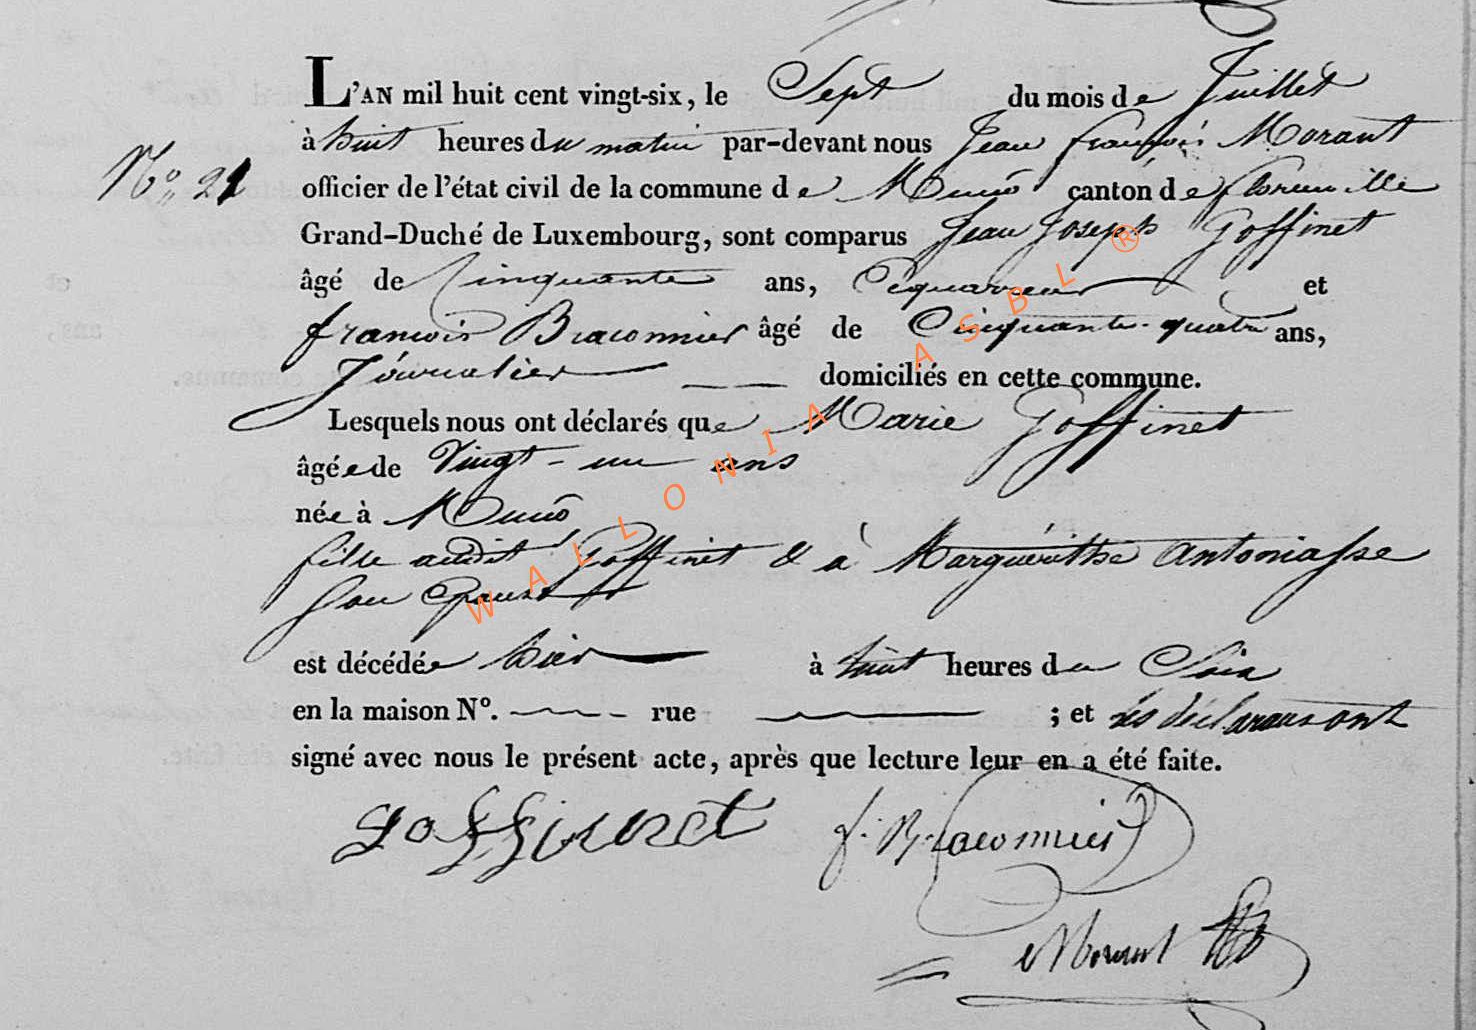 L'AN mil huit cent vingt-six, le Sept du mois de Juillet
à huit heures du matin par-devant nous Jean françois Morant
N° 21
officier de l'état civil de la commune de Munō canton de florenville
Grand-Duché de Luxembourg, sont comparus Jean Joseph Goffinet
âgé de Cinquante ans, Equarreur et
francois Braconnier âgé de Cinquante-quatre ans,
Journalier domiciliés en cette commune.
Lesquels nous ont déclarés que Marie Goffinet
âgée de Vingt-un ans
née à Munō
fille audit Goffinet & à Marguérithe Antoniasse
Son Epouse
est décédée hier à huit heures du Soir
en la maison N°. rue ; et les déclarans ont
signé avec nous le présent acte, après que lecture leur en a été faite.
Goffinet f. Braconnier
Morant
WALLONIA ASBL ®